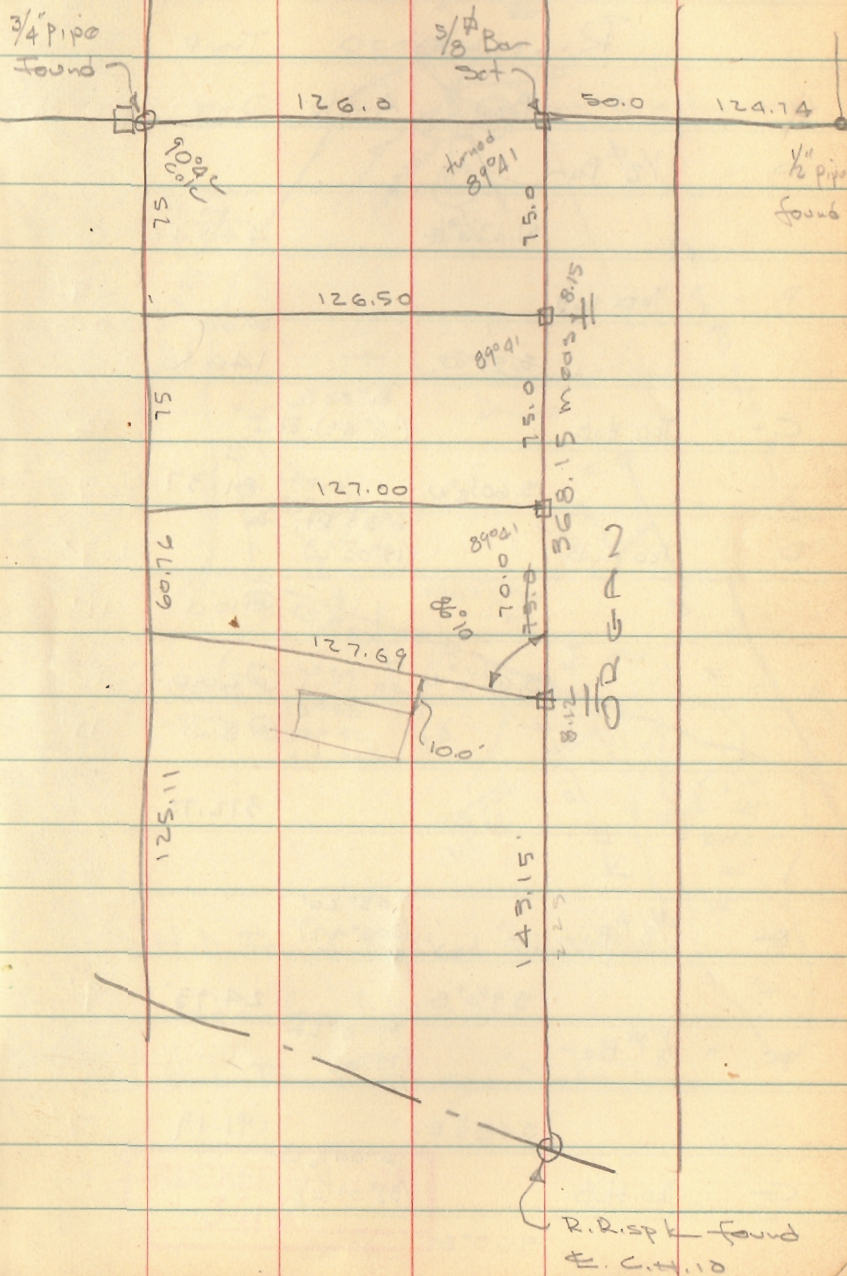 3/4" pipe
found
5/8" Φ Bar
Set
126.0
50.0
124.74
1/2" pipe
found
90°42'
calc
turned
89°41
75
75.0
126.50
8.15
89°41
75
75.0
368.15 meas.
127.00
89°41
60.76
70.0
75.0
127.69
8.12
10.0'
125.11
143.15'
225
R.R.spk found
℄ C.H.10